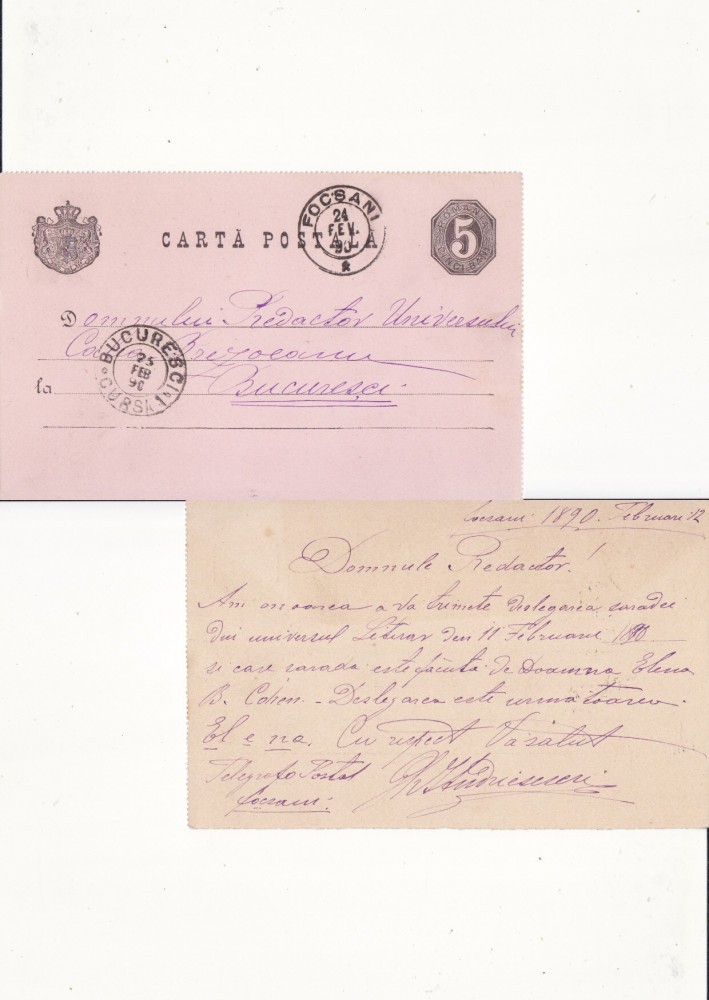 CARTĂ POSTALĂ
FOCSANI
24
FEV.
90
ROMANIA
5
CINCI BANI
Domnului Redactor Universului
Brezoeanu
la Bucuresci.
BUCURESCI
25
FEB
90
CURSA 1
Focsani 1890. Februarie 12
Domnule Redactor!
Am onoarea a va trimete deslegarea saradei
din universul Literar den 11 Februarie 1890
si care sarada este facuta de Doamna Elena
B. Cohen. - Deslegarea este urmatoarea.
El e na. Cu respect Va salut
Telegrafo Postal
Focsani.